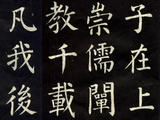 子在上
崇儒闡
教千載
凡我後